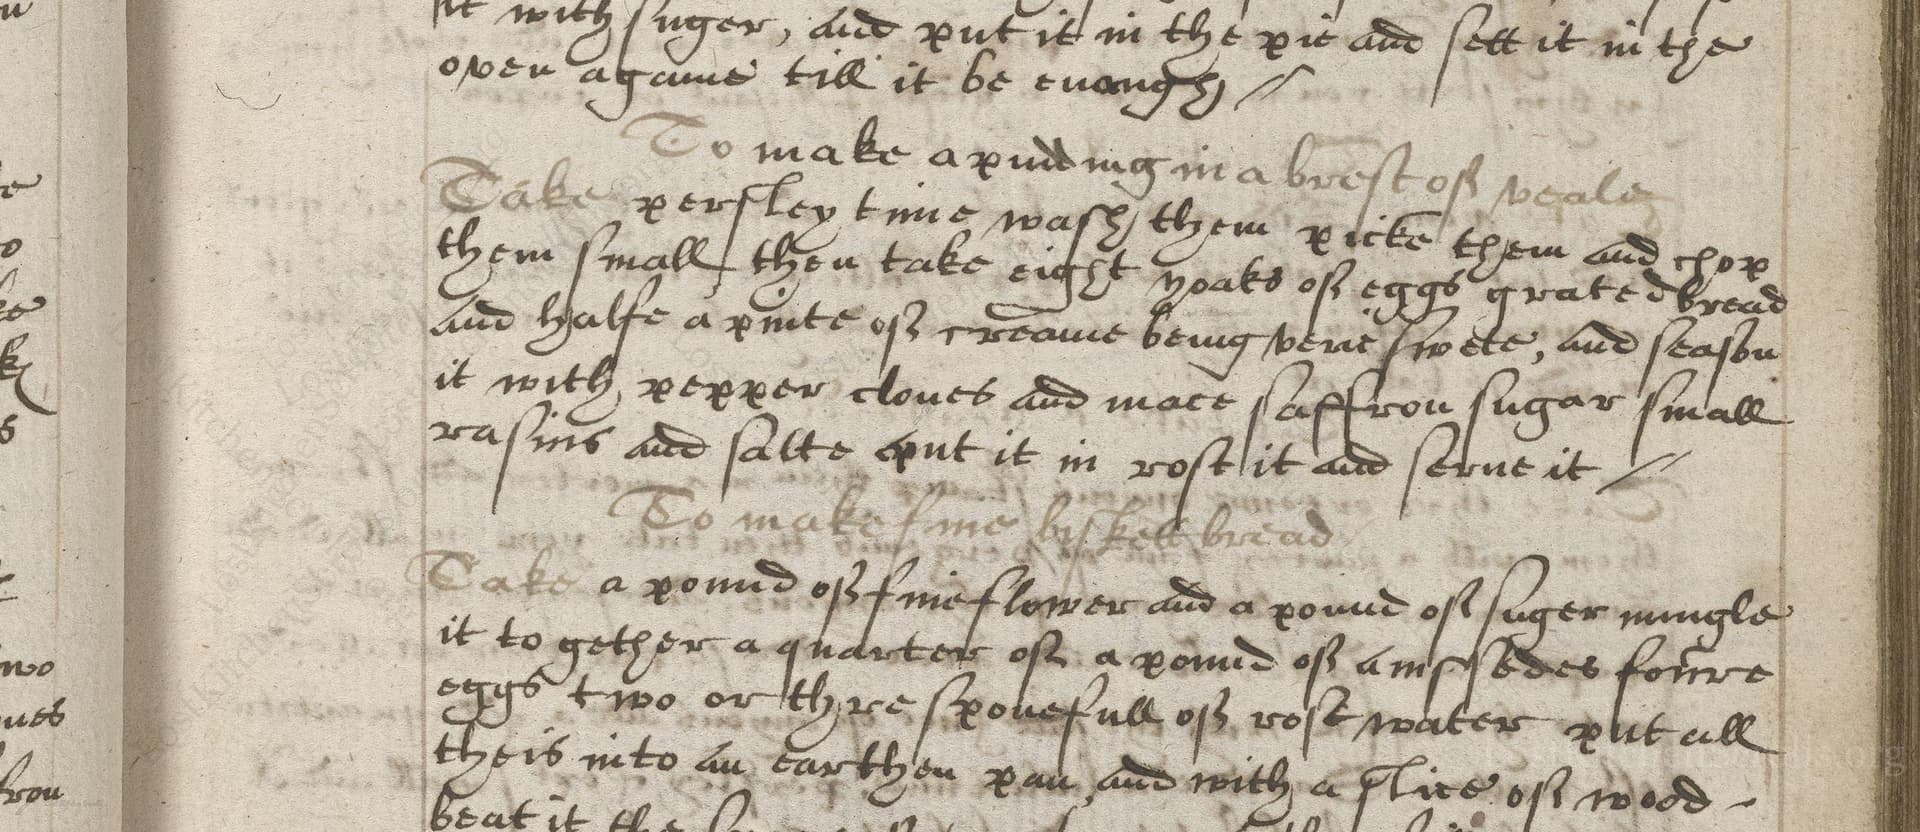 it with suger, and put it in the pie and sett it in the
oven againe till it be enough
To make a pudding in a brest of veale
Take persley time wash them picke them and chop
them small then take eight yoaks of eggs grated bread
and halfe a pinte of creame being verie swete, and season
it with pepper cloues and mace saffron sugar small
rasins and salte put it in rost it and serue it
To make fine bisket bread
Take a pound of fine flower and a pound of suger mingle
it to gether a quarter of a pound of anissedes foure
eggs two or thre sponefull of rose water put all
theis into an earthen pan and with a slice of wood
beat it the